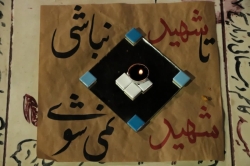 تا شهید نباشی
شهید نمی شوی